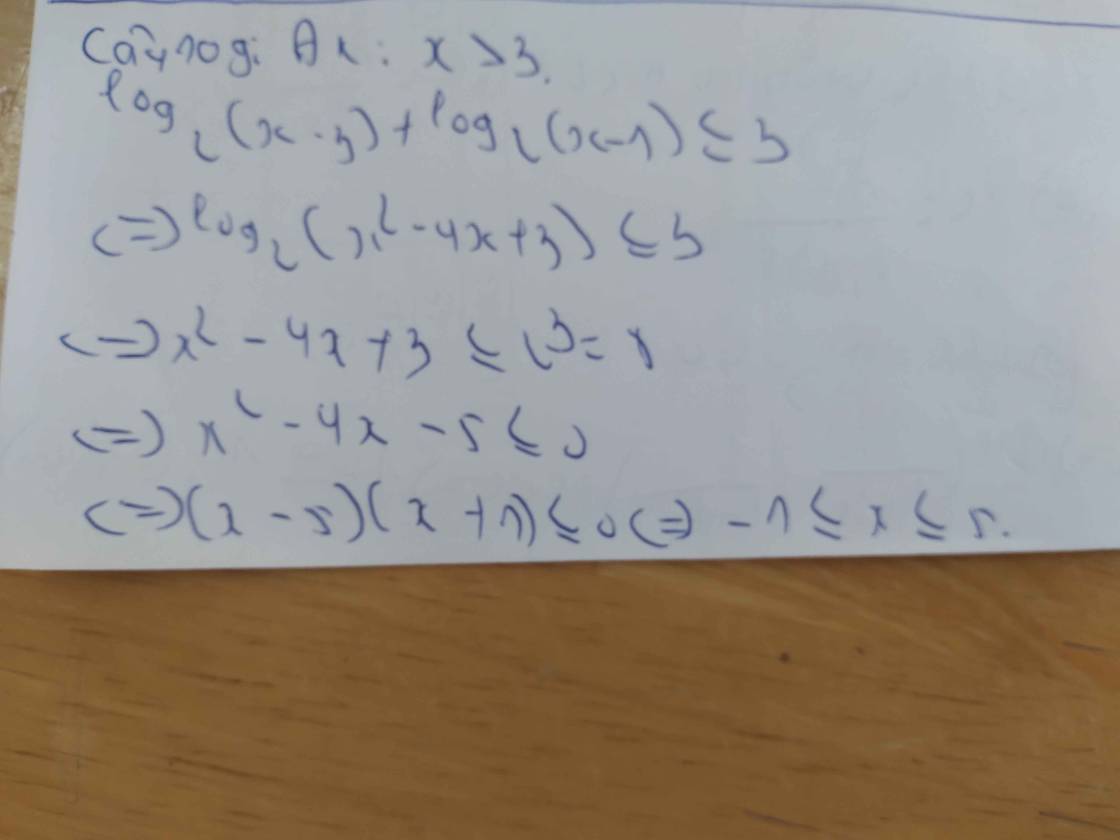 Câu 10g: Đk: x > 3.
log₂(x - 3) + log₂(x-1) ≤ 3
<=> log₂(x² - 4x + 3) ≤ 3
<=> x² - 4x + 3 ≤ 2³ = 8
<=> x² - 4x - 5 ≤ 0
<=> (x - 5)(x + 1) ≤ 0 <=> -1 ≤ x ≤ 5.